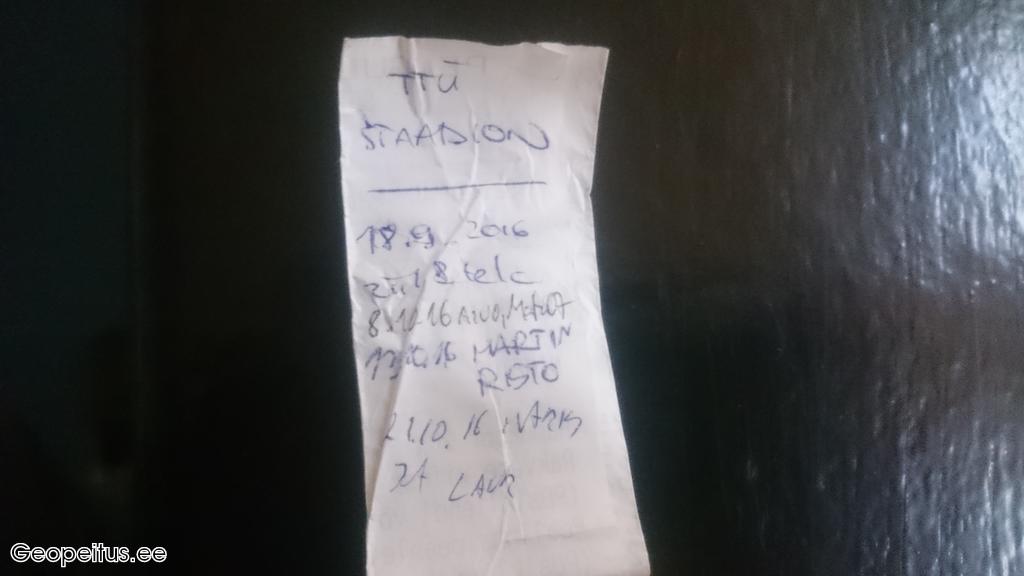 TTÜ
STAADION
18.9.2016
8.10.16 AIVO,
13.10.16 MARTIN
RISTO
21.10.16
JA LAUR
Geopeitus.ee